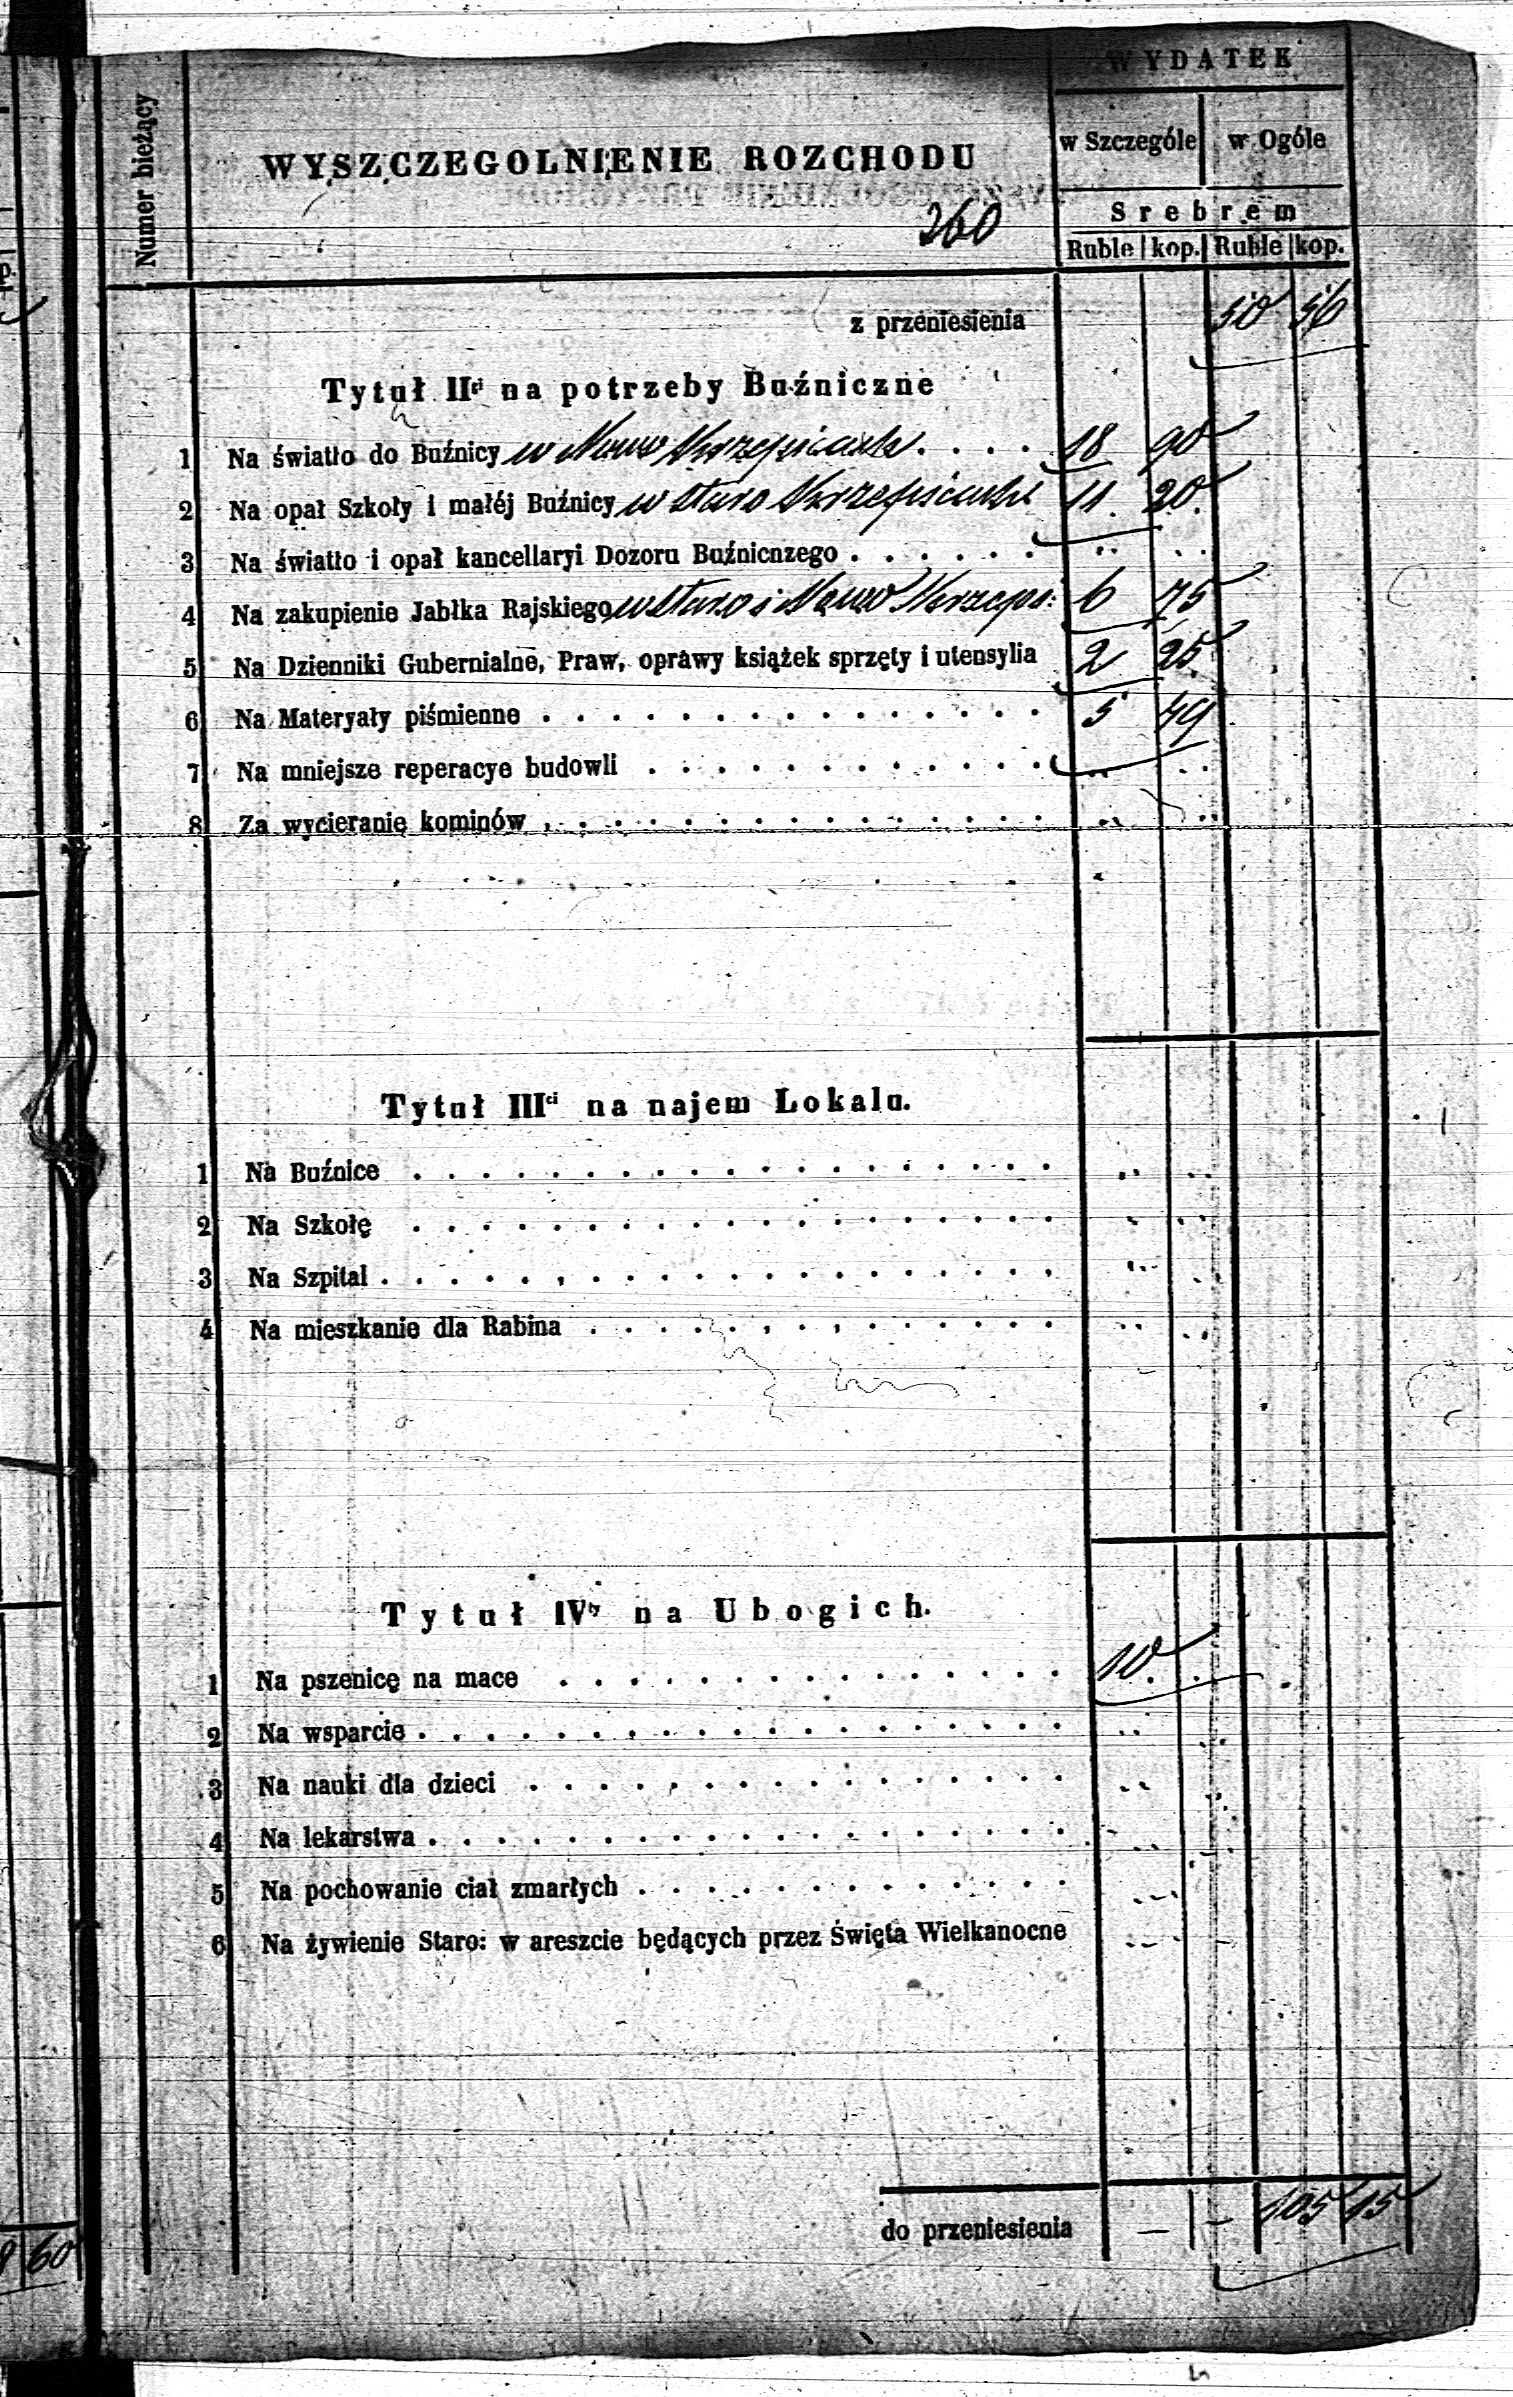 WYDATEK
Numer bieżący
WYSZCZEGOLNIENIE ROZCHODU
w Szczególe w Ogóle
Srebrem
260
Ruble kop. Ruble kop.
z przeniesienia 50 56
Tytuł IIgi na potrzeby Buźniczne
1 Na światło do Buźnicy w Nowo Krzepicach . . . . 18 90
2 Na opał Szkoły i małéj Buźnicy w Staro 11 20
3 Na światło i opał kancellaryi Dozoru Buźnicnzego . . . . . .
4 Na zakupienie Jabłka Rajskiego w Staro i Nowo Krzepi: 6 75
5 Na Dzienniki Gubernialne, Praw, oprawy książek sprzęty i utensylia 2 25
6 Na Materyały piśmienne . . . . . . . . . . . . . . . 5 49
7 Na mniejsze reperacye budowli . . . . . . . . . . . .
8 Za wycieranie kominów . . . . . . . . . . . . . . .
Tytuł IIIci na najem Lokalu.
1 Na Buźnice . . . . . . . . . . . . . . . . . . .
2 Na Szkołę . . . . . . . . . . . . . . . . . . .
3 Na Szpital . . . . . . . . . . . . . . . . . . . .
4 Na mieszkanie dla Rabina . . . . . . . . . . . . . .
Tytuł IVty na Ubogich.
1 Na pszenicę na mace . . . . . . . . . . . . . . . 10
2 Na wsparcie . . . . . . . . . . . . . . . . . . .
3 Na nauki dla dzieci . . . . . . . . . . . . . . . .
4 Na lekarstwa . . . . . . . . . . . . . . . . . . .
5 Na pochowanie ciał zmarłych . . . . . . . . . . . . .
6 Na żywienie Staro: w areszcie będących przez Święta Wielkanocne
do przeniesienia — – 105 15
60